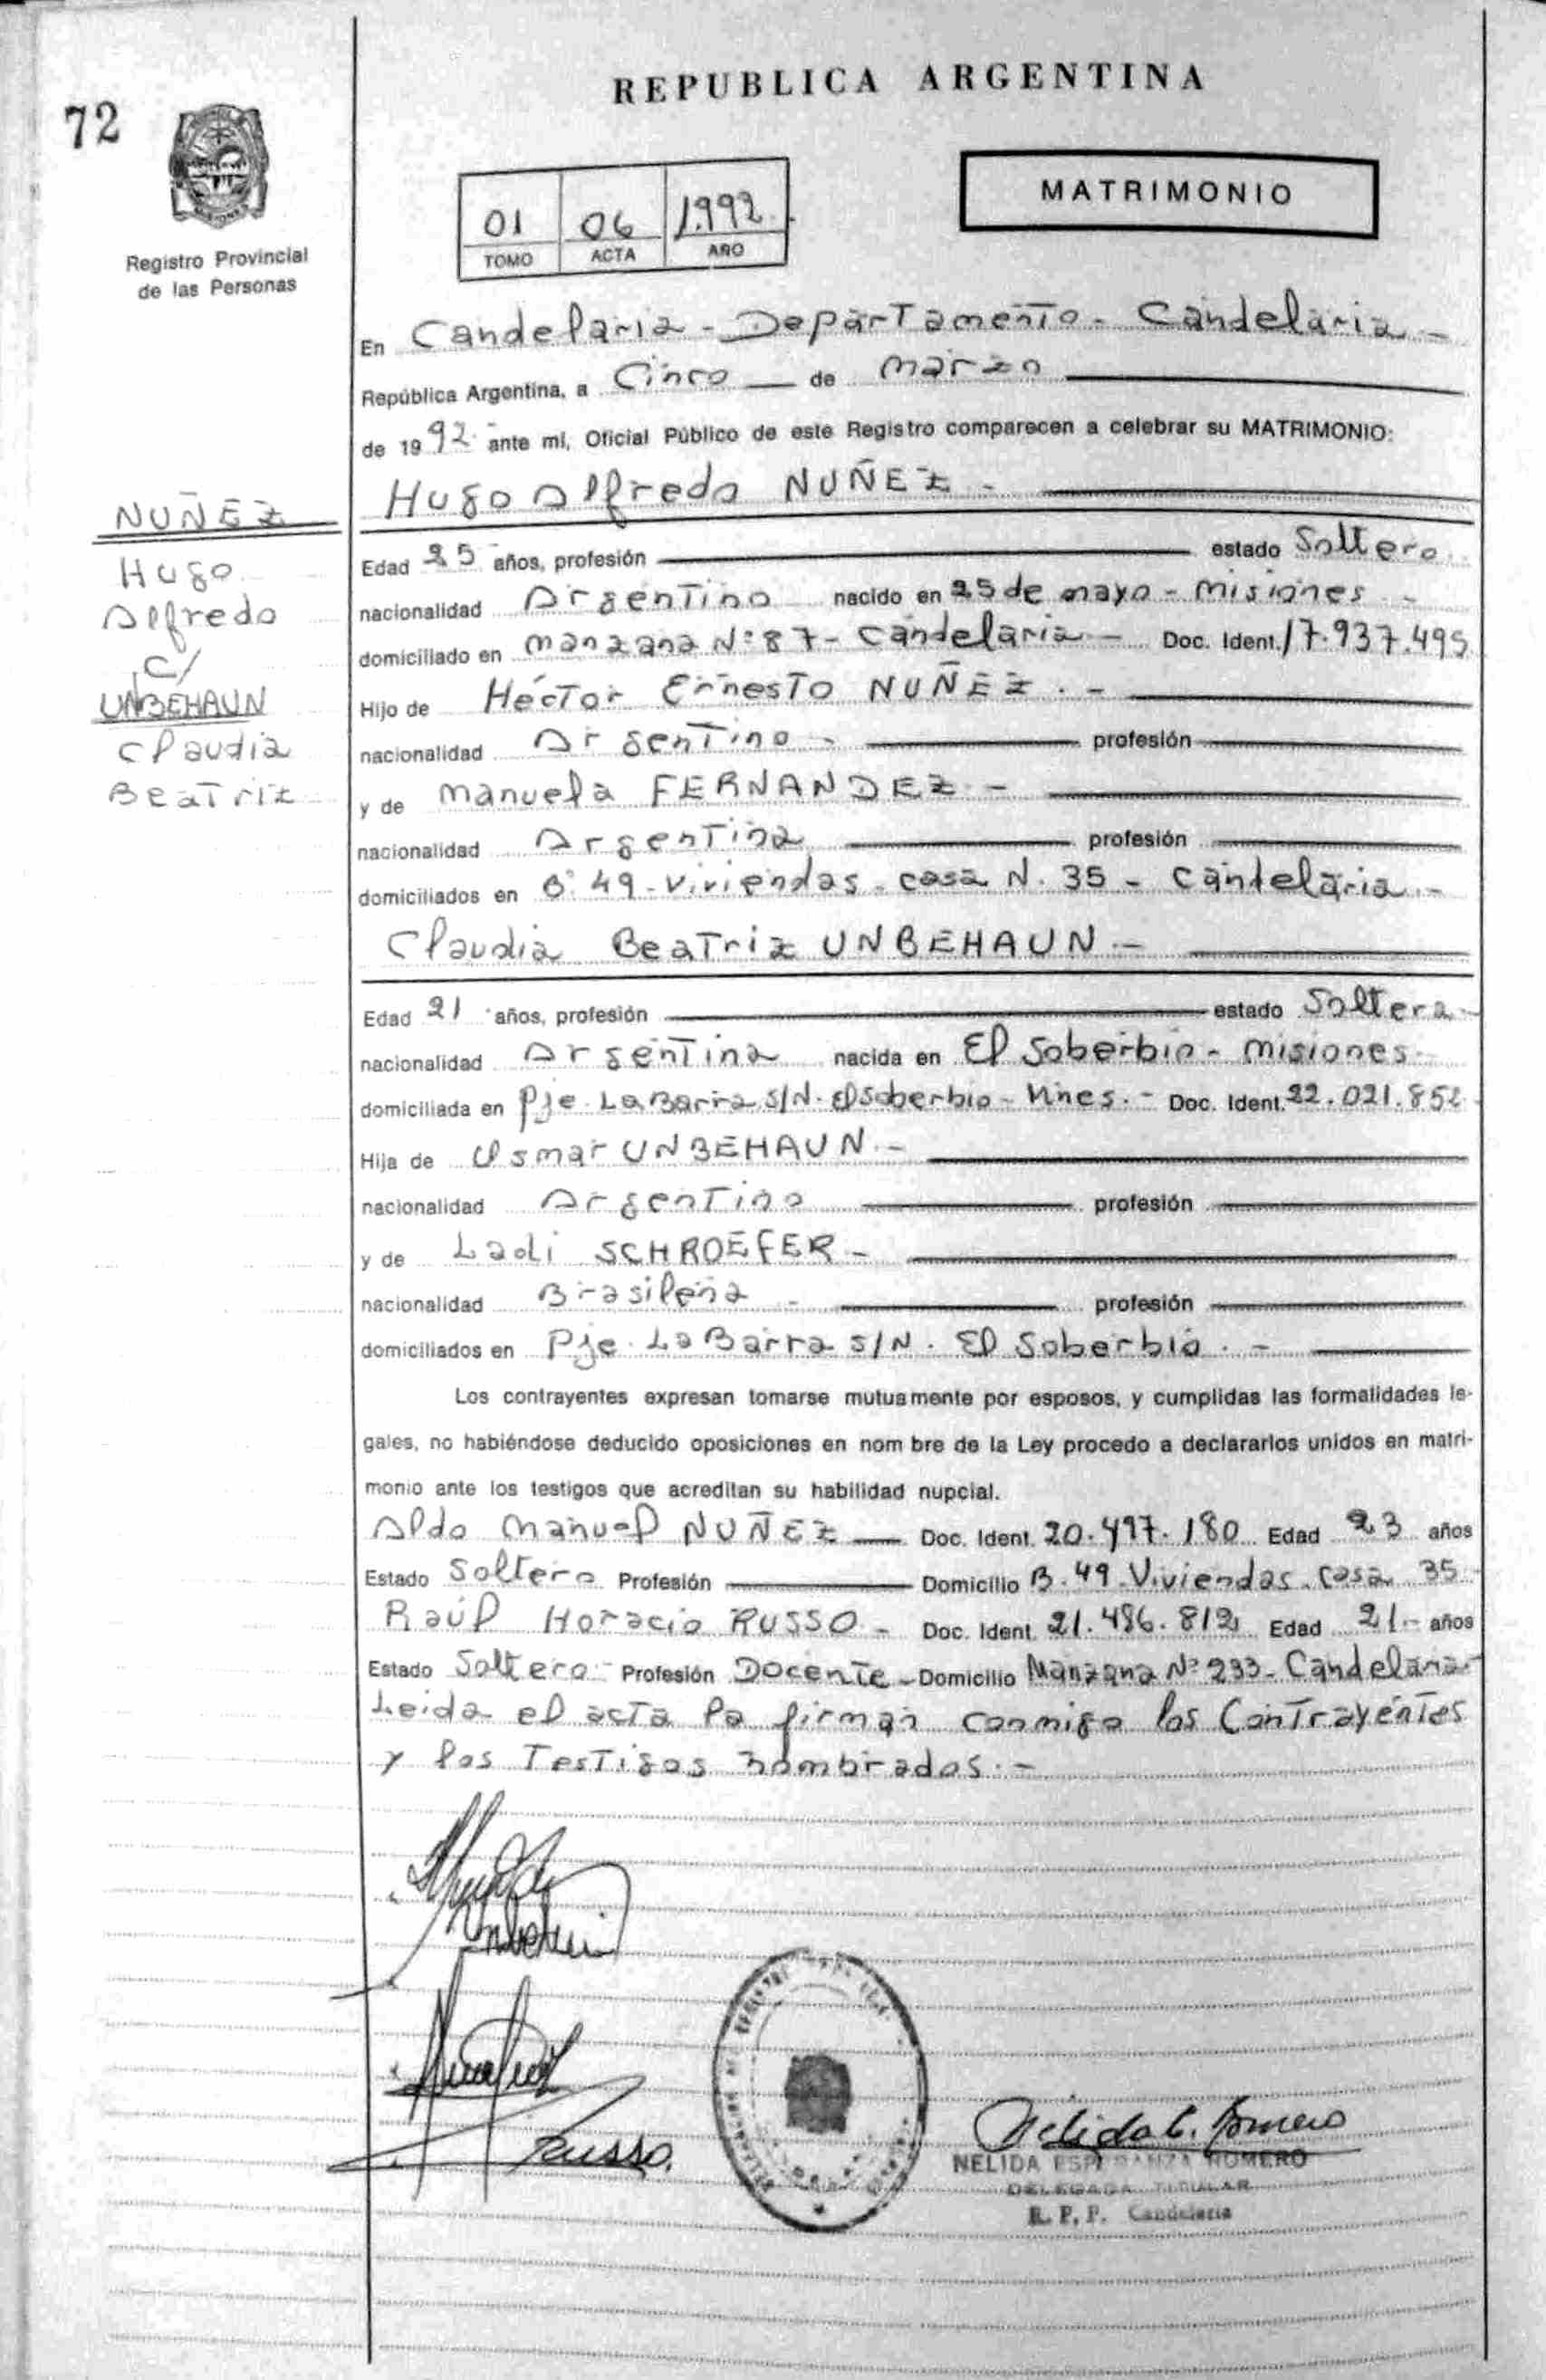 REPUBLICA ARGENTINA
72
MATRIMONIO
01 06 1.992
TOMO ACTA AÑO
Registro Provincial
de las Personas
En Candelaria - Departamento - Candelaria -
República Argentina, a Cinco de marzo
de 1992 ante mí, Oficial Público de este Registro comparecen a celebrar su MATRIMONIO:
Hugo Alfredo NUÑEZ -
NUÑEZ
Hugo
Alfredo
C/
UNBEHAUN
Claudia
Beatriz
Edad 25 años, profesión estado Soltero
nacionalidad Argentino nacido en 25 de mayo - misiones -
domiciliado en manzana Nº 87 - Candelaria - Doc. Ident. 17.937.495
Hijo de Héctor Ernesto NUÑEZ . -
nacionalidad Argentino - profesión
y de manuela FERNANDEZ -
nacionalidad Argentina profesión
domiciliados en Bº 49 - viviendas - casa N. 35 - Candelaria -
Claudia Beatriz UNBEHAUN . -
Edad 21 años, profesión estado Soltera -
nacionalidad Argentina nacida en El Soberbio - misiones -
domiciliada en Pje. La Barra S/N. El Soberbio - Mnes. - Doc. Ident. 22.021.852
Hija de Osmar UNBEHAUN . -
nacionalidad Argentino profesión
y de Ladi SCHROEFER -
nacionalidad Brasileña - profesión
domiciliados en Pje. La Barra S/N. El Soberbio . -
Los contrayentes expresan tomarse mutuamente por esposos, y cumplidas las formalidades le-
gales, no habiéndose deducido oposiciones en nom bre de la Ley procedo a declararlos unidos en matri-
monio ante los testigos que acreditan su habilidad nupcial.
Aldo Manuel NUÑEZ Doc. Ident. 20.497.180 Edad 23 años
Estado Soltero Profesión Domicilio B. 49 Viviendas. Casa 35
Raúl Horacio RUSSO - Doc. Ident. 21.486.812 Edad 21 - años
Estado Soltero - Profesión Docente - Domicilio Manzana Nº 233 - Candelaria -
Leida el acta la firman conmigo los Contrayentes
y los Testigos nombrados . -
Russo.
Nelida E. Romero
NELIDA ESPERANZA ROMERO
DELEGADA TITULAR
R. P. P. Candelaria